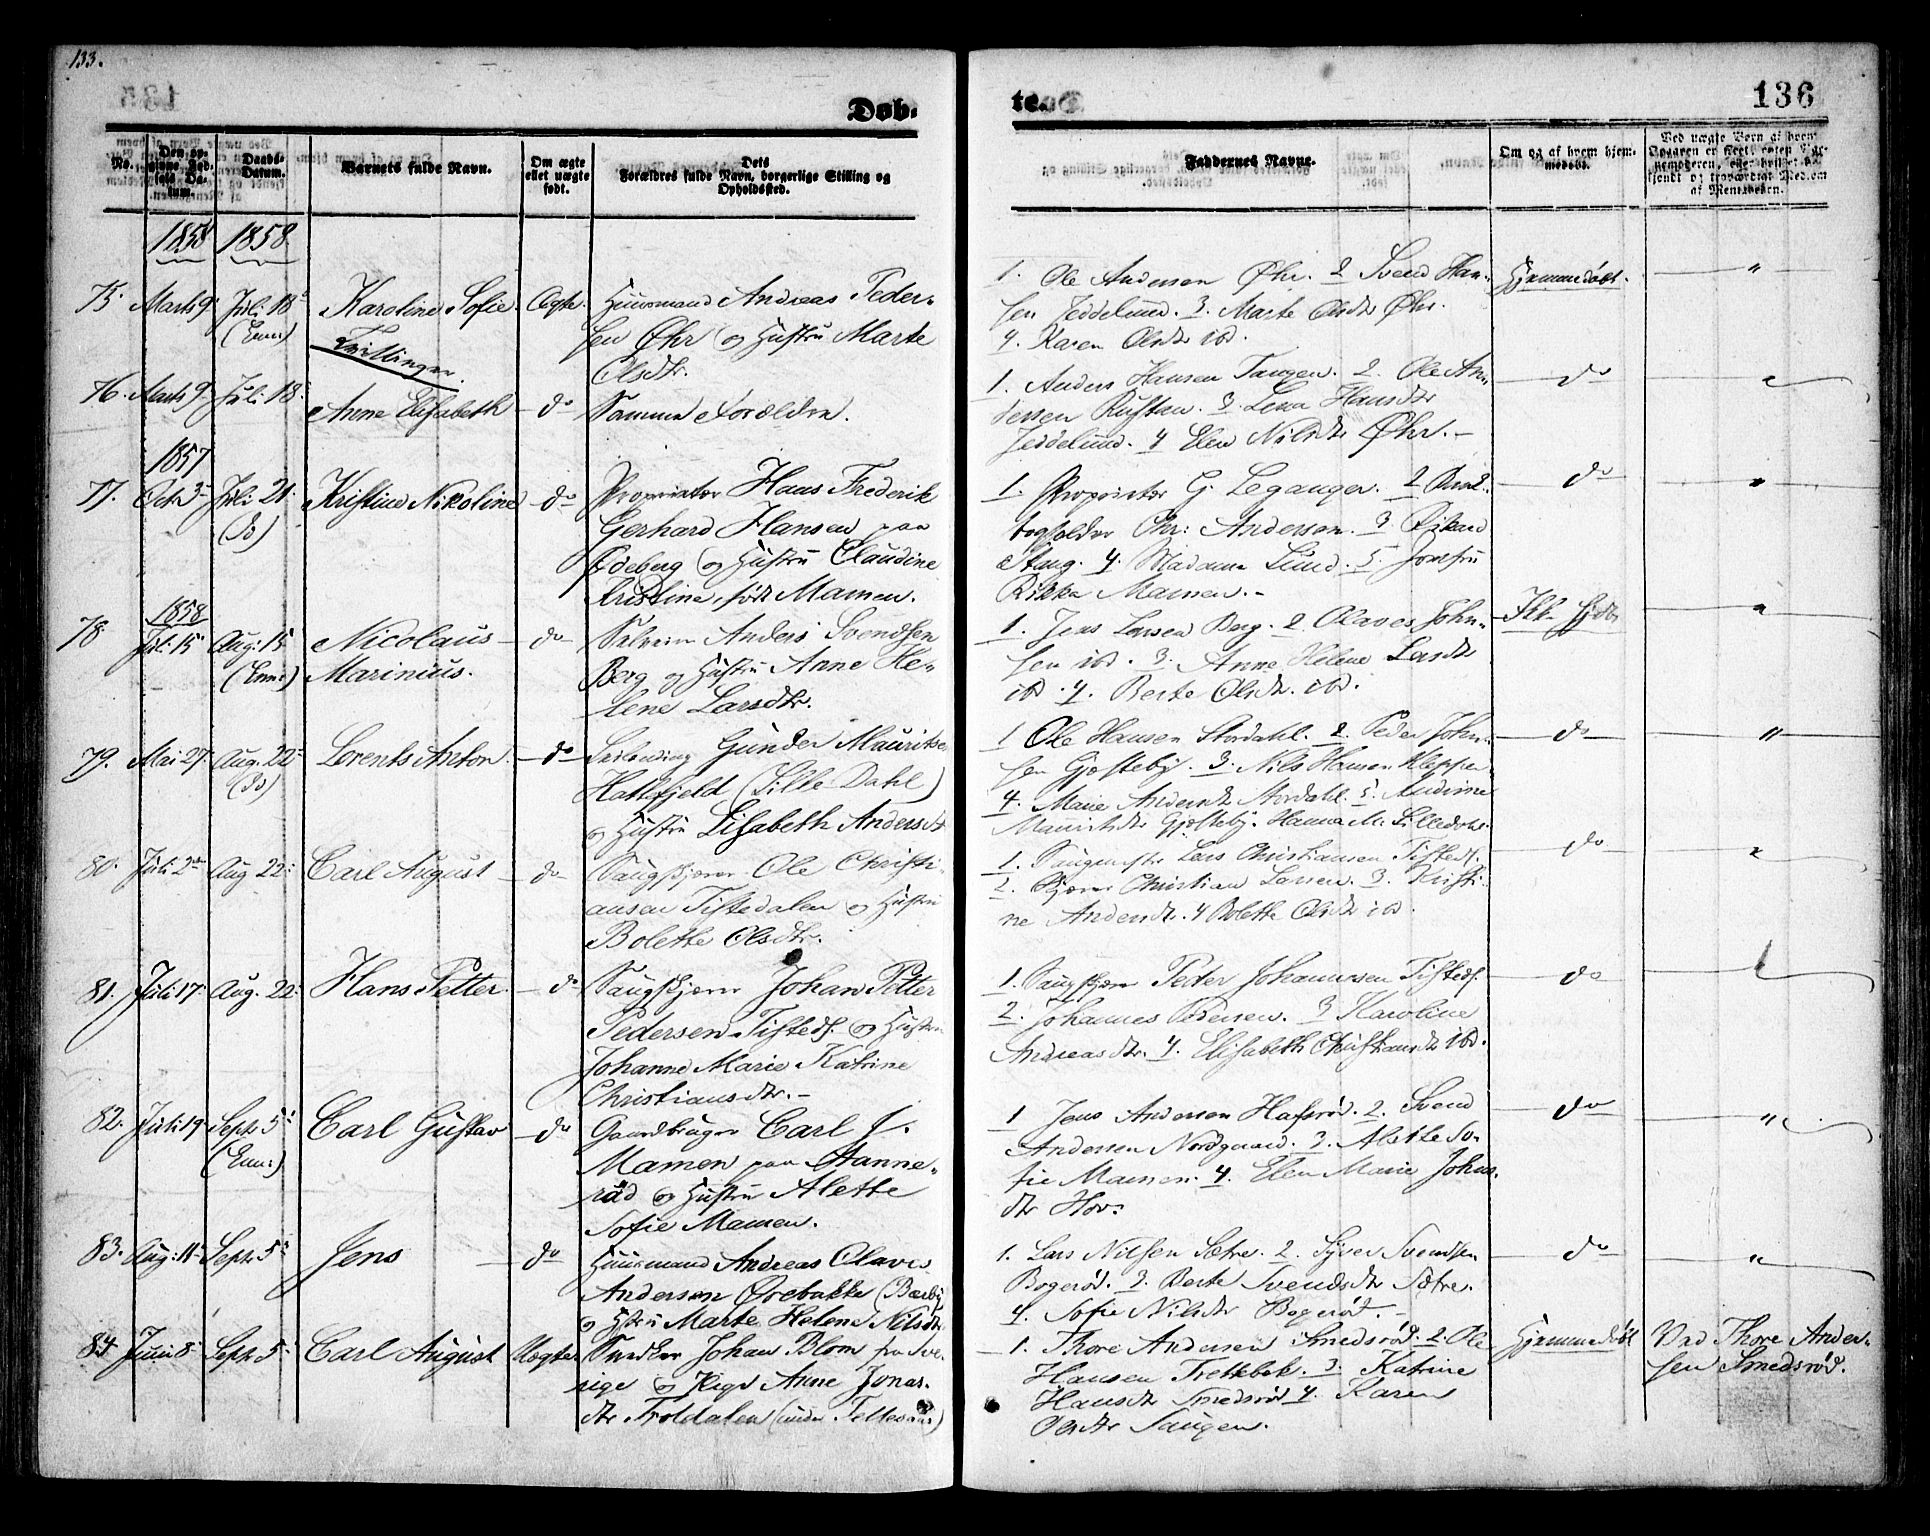 133.
136
Døb-
te.
No.
Den op-
givne Fød-
sels Da-
tum.
Daabs-
Datum.
Barnets fulde Navn.
Om ægte
eller uægte
født.
Dets
Forældres fulde Navn, borgerlige Stilling og
Opholdssted.
Faddernes Navne.
Om og af hvem hjem-
medøbt.
1858 1858.
75. Marts 9. Juli 18
(Enn:)
Karoline Sofie
Tvillinger
Ægte
Huusmand Andreas Peder-
sen Øhr og Hustru Marte
Olsdtr.
1. Ole Andersen Øhr. 2 Svend Han-
sen Jeddelund. 3. Marte Olsdtr Øhr.
4. Karen Olsdtr ibd.
Hjemmedøbt.
"
76. Marts 9. Juli 18.
Anne Elisabeth
do
Samme Forældre.
1. Anders Hansen Tangen. 2. Ole An-
dersen Rustan. 3. Lena Hansdtr
Jeddelund. 4 Elen Nilsdtr Øhr.
do
1857
77. Octr 3 Juli 21
(Do)
Kristine Nikoline
do
Proprietær Hans Frederik
Gerhard Hansen paa
Ødeberg og Hustru Claudine
Kristine, født Mamen.
1. Proprietær G. Leganger. 2
Chr: Andersen. 3
Stang. 4. Madame Lund. 5. Jomfru
Rikka Mamen.
do
1858
78. Juli 15 Aug: 15
(Enn:)
Nicolaus
Marinius.
do
Selveier Anders Svendsen
Berg og Hustru Anne He-
lene Larsdtr.
1. Jens Larsen Berg. 2. Olaves John-
sen ibd. 3. Anne Helene Larsdtr
ibd. 4. Berte Olsdtr. ibd.
Ikke hjdbt
79. Mai 27. Aug. 22
(Do)
Lorents Anton.
do
Gunder Mauritsen
Hattefjeld (Lille Dahl)
og Hustru Elisabeth Andersdtr
1 Ole Hansen Stordahl. 2. Peder John-
sen Gjøsteby. 3. Nils Hansen Klepper
4. Marie Andersdtr Stordahl. 5. Andrine
Mauritsdtr Gjøsteby. Hanna M. Lilledahl
do
"
80. Juli 2 Aug 22
Carl August
do
Saugskjærer Ole Christi-
ansen Tistedalen og Hustru
Bolette Olsdtr.
1. Saugmester Lars Christiansen Tistedl.
2. Skjærer Christian Larsen. 3. Kristi-
ne Andersdtr. 4 Bolette Olsdtr ibd.
do
81. Juli 17. Aug. 22
Hans Petter.
do
Saugskjærer Johan Petter
Pedersen Tistedl. og Hustru
Johanne Marie Katrine
Christiansdtr.
1. Saugskjærer Peter Johannesen Tistedl.
2. Johannes Pedersen. 3 Karoline
Andreasdtr. 4. Elisabeth Christiansdtr ibd.
do
82. Juli 19 Septr 5
(Enn:)
Carl Gustav
do
Gaardbruger Carl J.
Mamen paa Hanne-
röd og Hustru Alette
Sofie Mamen.
1 Jens Andersen Hafsrød. 2. Svend
Andersen Nordgaard. 3. Alette So-
fie Mamen. 4. Elen Marie Johns-
dtr Hov.
do
"
83. Aug: 11 Septr 5
Jens
do
Huusmand Andreas Olaves
Andersen Ørebakke (Barby)
og Hstru Marte Helene Nilsdtr
1. Lars Nilsen Sætre. 2. Syver Svendsen
Bogerød. 3. Berte Svendsdtr Sætre.
4. Sofie Nilsdtr Bogerød.
do
"
84 Juni 8 Septr 5
Carl August
Uægte
Snedker Johan Blom fra Sve-
rige og Pige Anne Jonas-
dtr Troldalen (under Tellesaas)
1. Thore Andersen Smedsrød. 2. Ole
Hansen Trekkebek. 3. Katrine
Hansdtr Smedsrød. 4. Karen
Olsdtr Saugen.
Hjemmedøbt
Ved Thore Ander-
sen Smedsrød.